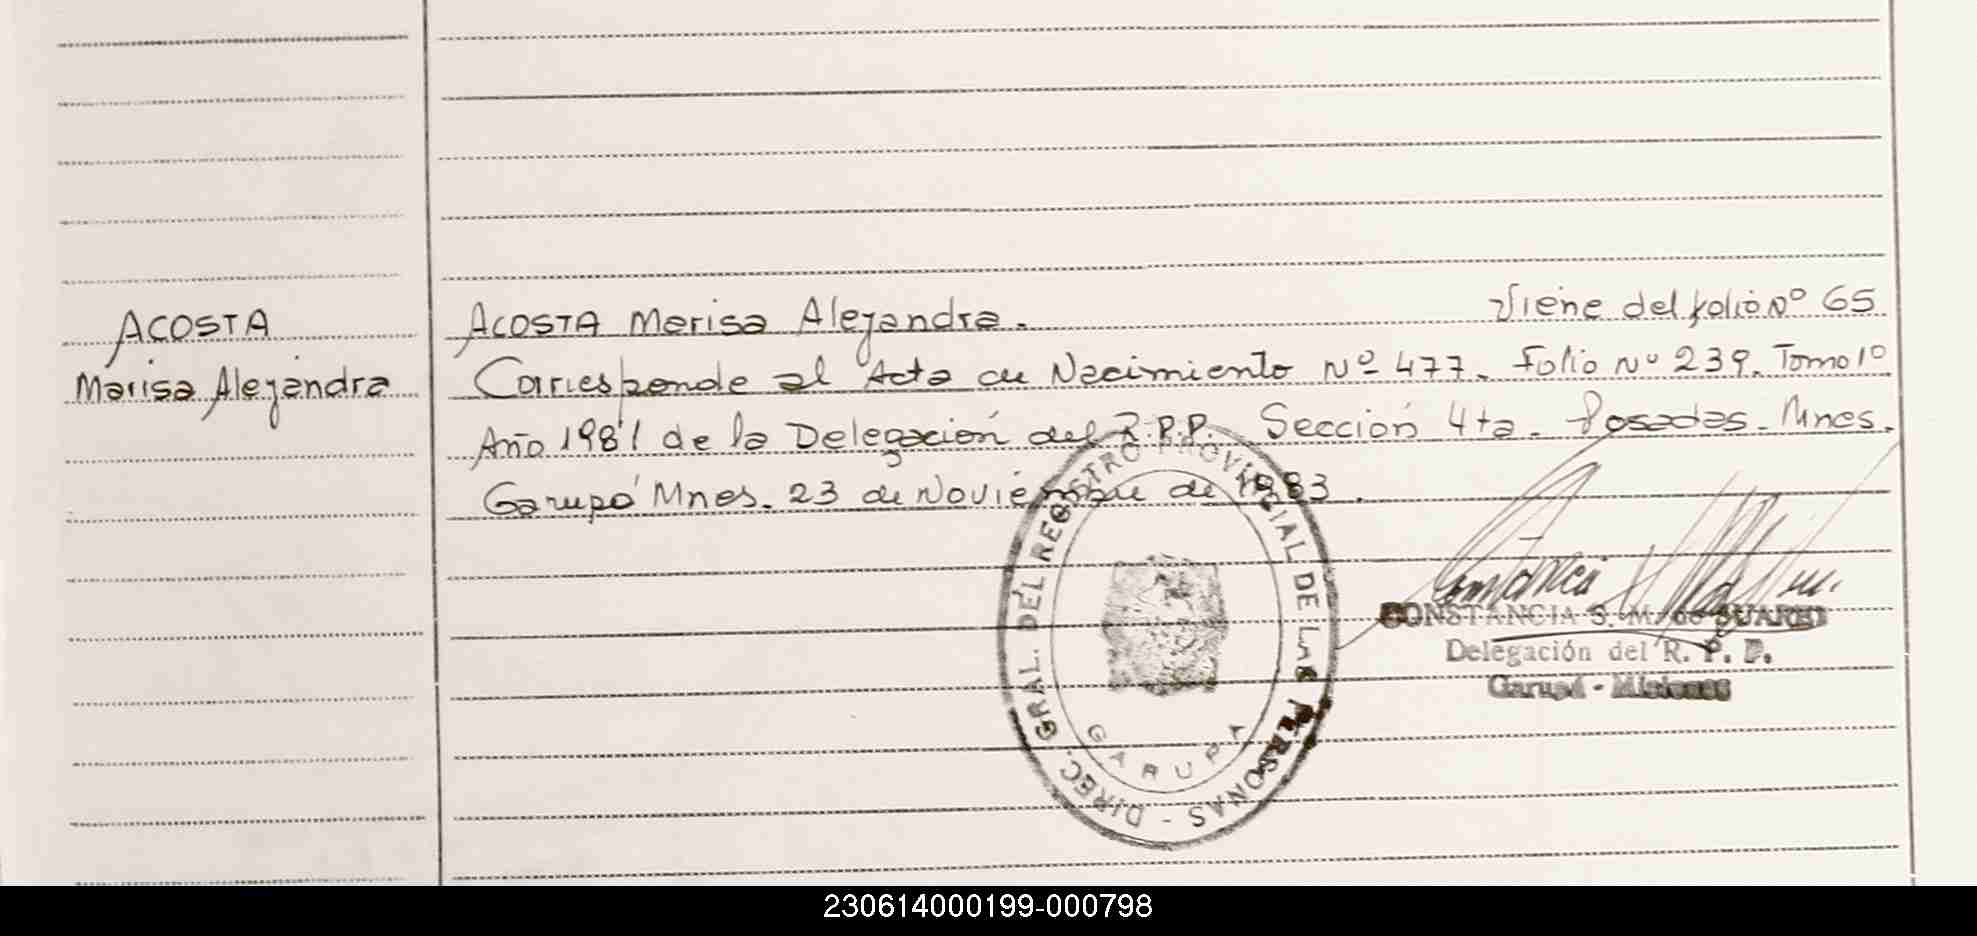 ACOSTA
Marisa Alejandra
ACOSTA Marisa Alejandra. Viene del folio Nº 65
Corresponde al Acta de Nacimiento Nº 477. Folio Nº 239. Tomo 1º
Año 1981 de la Delegación del R.P.P. Sección 4ta. Posadas. Mnes.
Garupá Mnes. 23 de Noviembre de 1983.
DIREC. GRAL. DEL REGISTRO PROVINCIAL DE LAS PERSONAS -
GARUPA
CONSTANCIA S. M. de SUAREZ
Delegación del R. P. P.
Garupá - Misiones
230614000199-000798